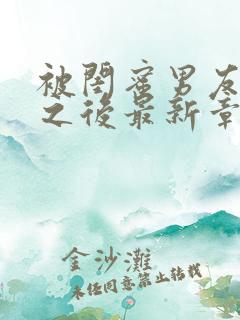 被閨蜜男友
之後最新章
金沙灘
未经同意禁止转载